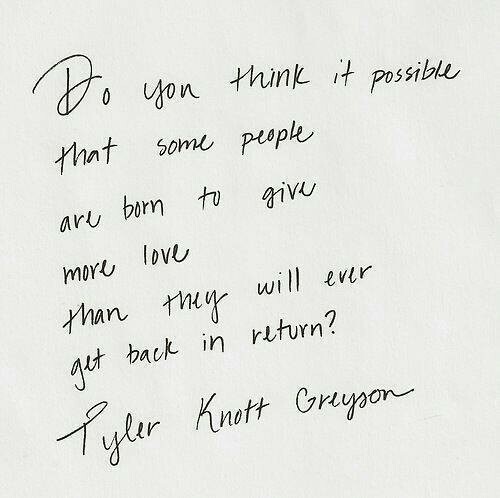 Do you think it possible
that some people
are born to give
more love
than they will ever
get back in return?
Tyler Knott Greyson